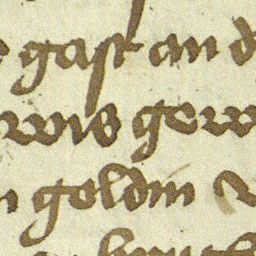 gast an d
wis gew
n goldin v